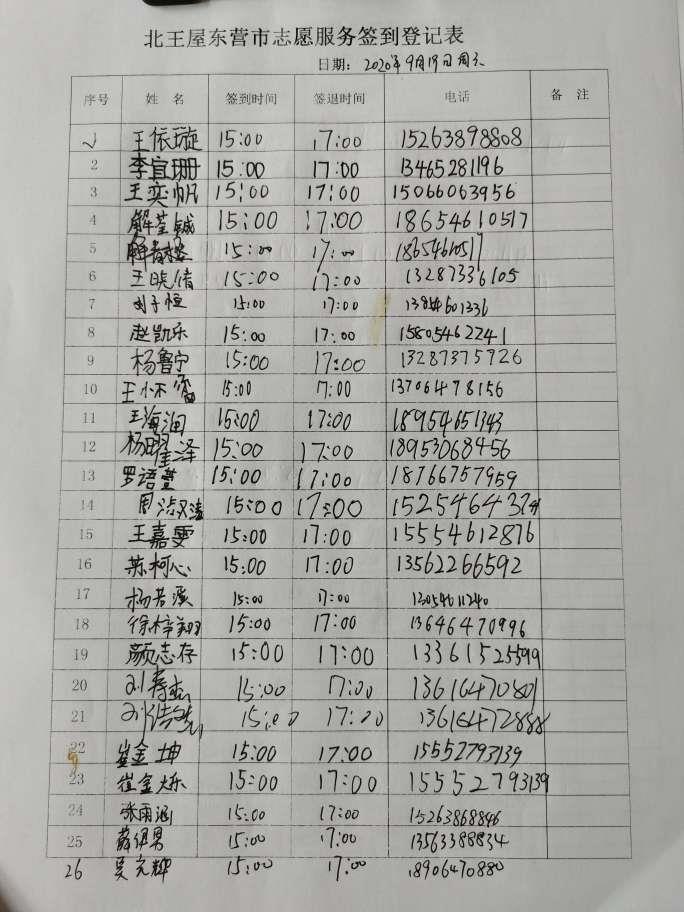 北王屋东营市志愿服务签到登记表
日期: 2020年9月19日 周六
序号 姓 名 签到时间 签退时间 电话 备 注
王依璇 15:00 17:00 15263898808
2 李宜珊 15:00 17:00 13465281196
3 王奕帆 15:00 17:00 15066063956
4 解荃铖 15:00 17:00 18654610517
5 15:00 17:00 18654610517
6 王晓倩 15:00 17:00 13287336105
7 刘子恒 15:00 17:00 13854601336
8 赵凯乐 15:00 17:00 15805462241
9 杨鲁宁 15:00 17:00 13287375726
10 王怀 15:00 17:00 13706478156
11 王海润 15:00 17:00 18954651343
12 杨曜泽 15:00 17:00 18953068456
13 罗语萱 15:00 17:00 18766757959
14 周 15:00 17:00
15 王嘉雯 15:00 17:00 15554612876
16 苏柯心 15:00 17:00 13562266592
17 杨若溪 15:00 17:00 13054611240
18 徐梓翔 15:00 17:00 13646470996
19 颜志存 15:00 17:00 13361525599
20 刘 15:00 17:00 13616470801
21 刘浩 15:00 17:00 13616472888
22 崔金坤 15:00 17:00 15552793139
23 崔金烁 15:00 17:00 15552793139
24 张雨涵 15:00 17:00 15263868846
25 薛伊男 15:00 17:00 13563388834
26 吴元辉 15:00 17:00 18906470880